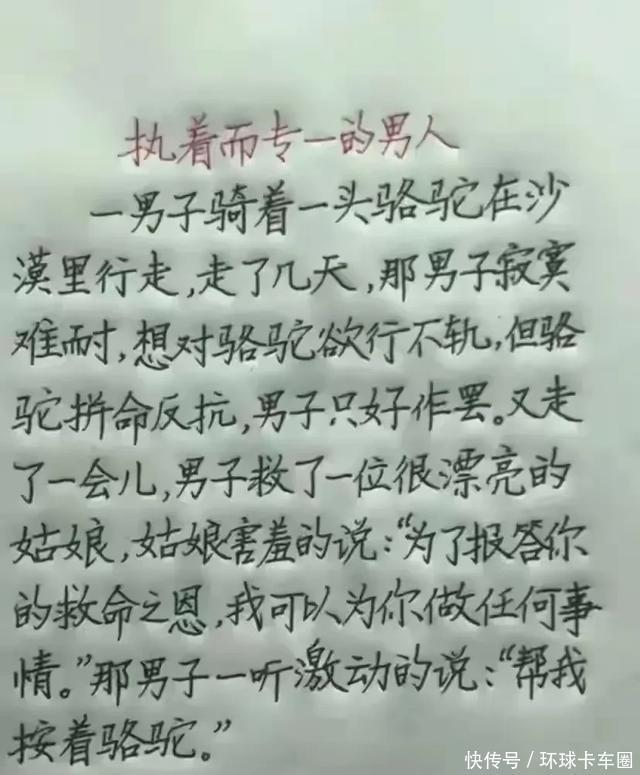 执着而专一的男人
一男子骑着一头骆驼在沙
漠里行走,走了几天,那男子寂寞
难耐,想对骆驼欲行不轨,但骆
驼拼命反抗,男子只好作罢。又走
了一会儿,男子救了一位很漂亮的
姑娘,姑娘害羞的说:“为了报答你
的救命之恩,我可以为你做任何事
情。”那男子一听激动的说:“帮我
按着骆驼。”
快传号/环球卡车圈